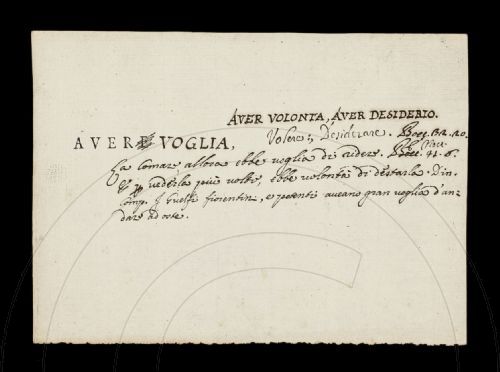 AVER VOLONTA, AVER DESIDERIO.
AVER VOGLIA, Volere; Desiderare. Bocc.
La Comare allora ebbe voglia di ridere. Bocc. 41. 6.
E vedutola più volte, ebbe volontà di destarla. Din.
Comp. I Guelfi fiorentini, e potenti aveano gran voglia d'an-
dare ad oste.